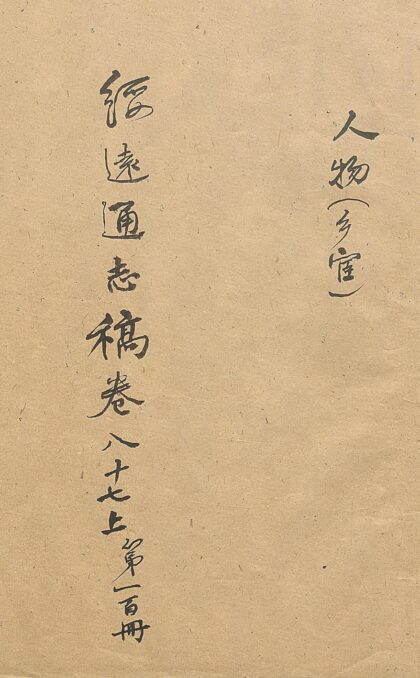 人物(乡宦)
綏遠通志稿卷八十七上 第一百冊